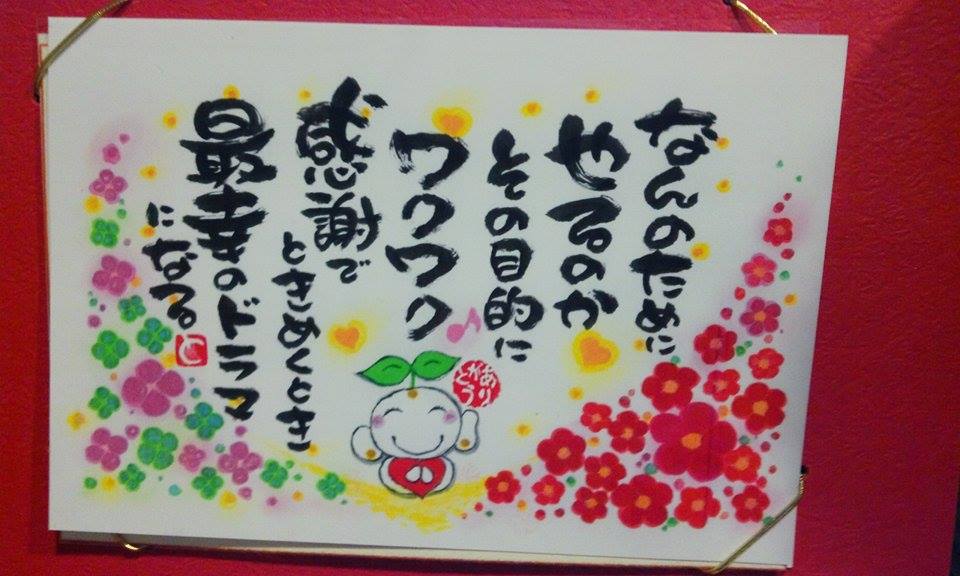 なんのために
やるのか
その目的に
ワクワク
感謝で
ときめくとき
最幸のドラマ
になる。
と
ありがとう